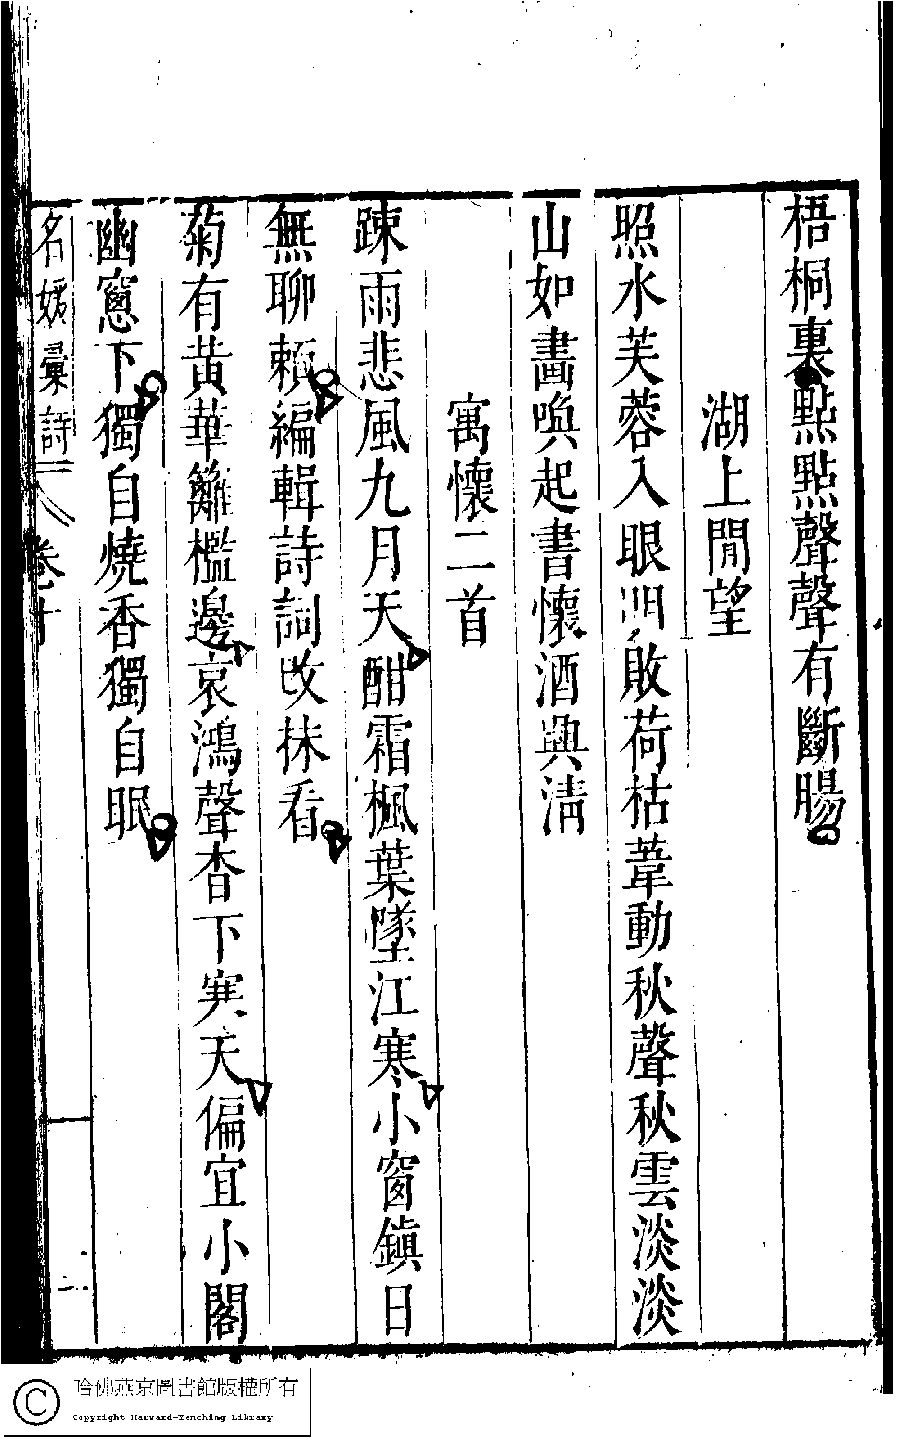 梧桐裏點點聲聲有斷腸
湖上閒望
照水芙蓉入眼明敗荷枯葦動秋聲秋雲淡淡
山如畵喚起書懷酒興清
寓懷二首
踈雨悲風九月天酣霜楓葉墜江寒小窗鎮日
無聊賴編輯詩詞改抹看
菊有黄華籬檻邊哀鴻聲杳下寒天偏宜小閣
幽窻下獨自燒香獨自眠
名媛彙詩 卷十 二
哈佛燕京圖書館版權所有
Copyright Harvard-Yenching Library